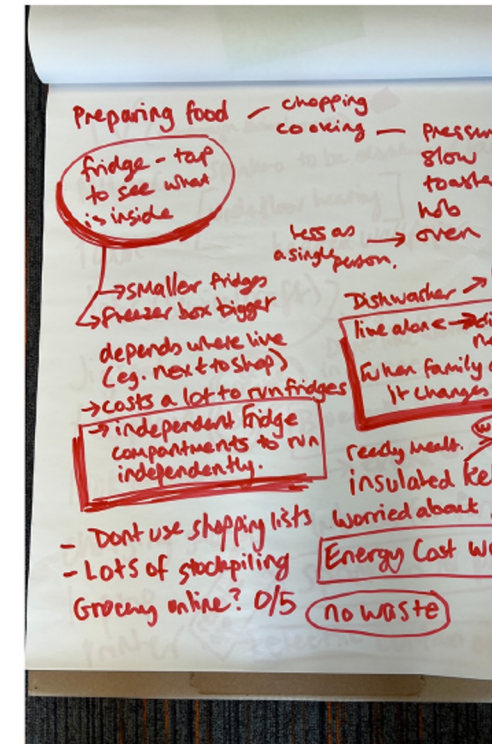 Preparing food - chopping
cooking -
slow
hob
oven
fridge - tap
to see what
is inside
less as
a single person.
→ smaller fridges
→ freezer box bigger
depends where live
(eg. next to shop)
→ costs a lot to run fridges
→ independent fridge
compartments to run
independently.
Dishwasher
live alone →
when family
It changes
ready meals.
insulated
worried about
Energy Cost
- Dont use shopping lists
- Lots of stockpiling
Grocery online? 0/5
no waste